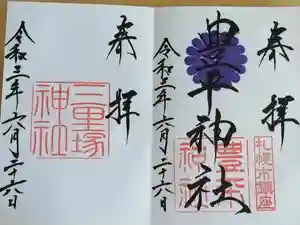 奉拝
豊平神社
札幌市鎮座
豊平神社
令和三年六月二十六日
奉拝
三里塚神社
令和三年六月二十六日